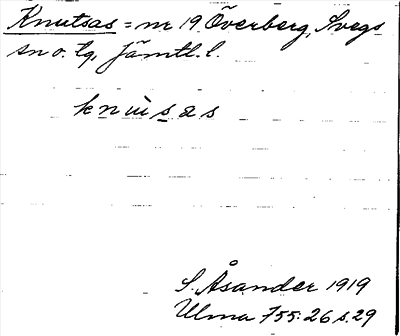 Knutsas = nr 19 Överberg, Svegs
sn o. tg, Jämtl. l.
knùsas
S. Åsander 1919
Ulma 755:26 s. 29